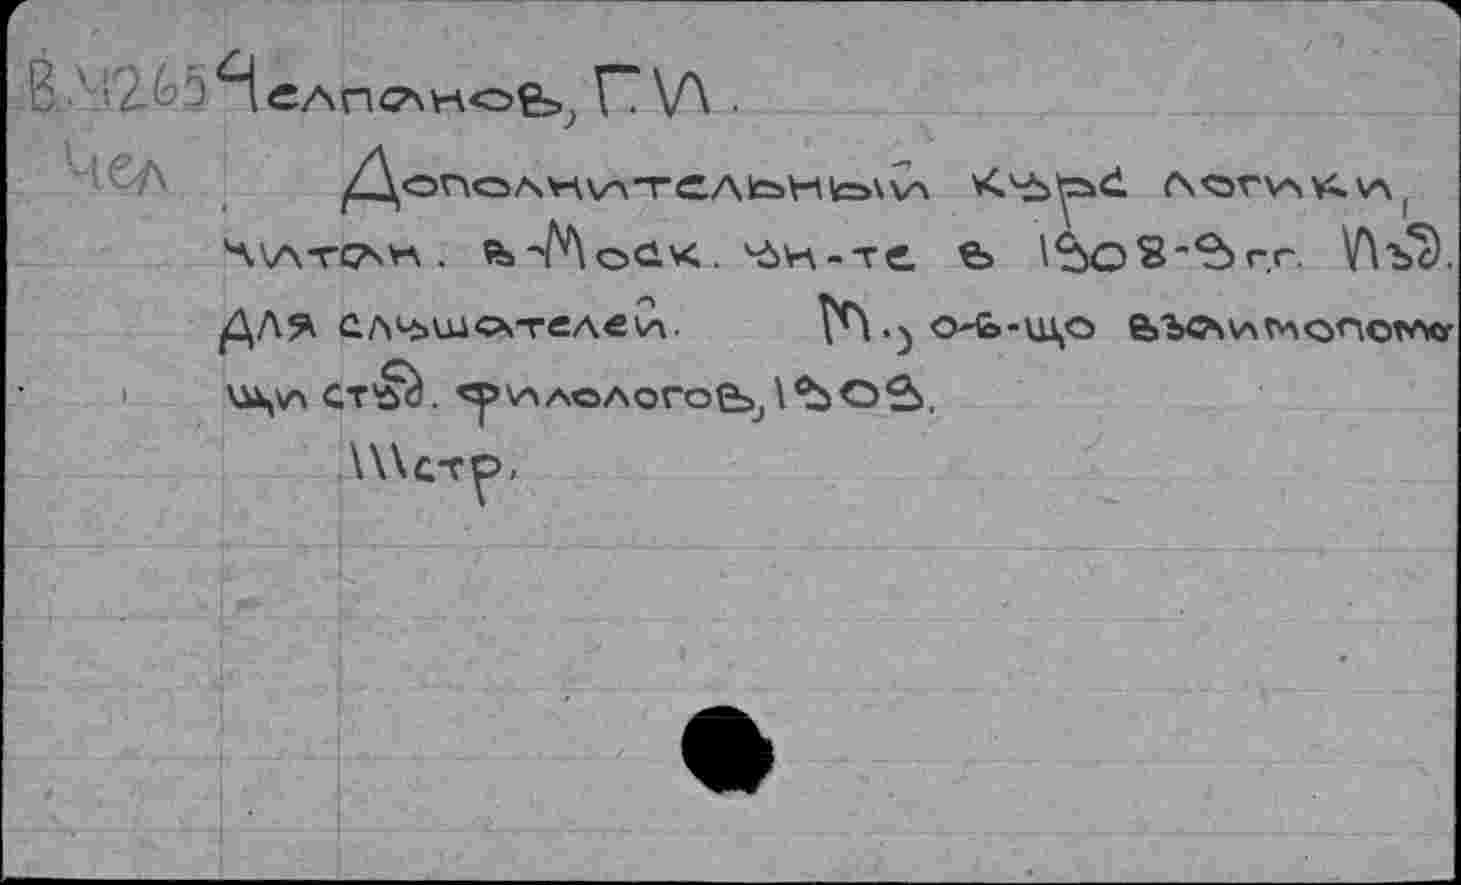 В.Ч265 Челпанов, Г. И.
Чел Дополнительный курс логики,
читан. в Моск. ун-те в 1908-9 г.г. Изд.
для слушателей. М., о-в-що взаимопомо-
щи студ. филологов, 1909.
111стр.